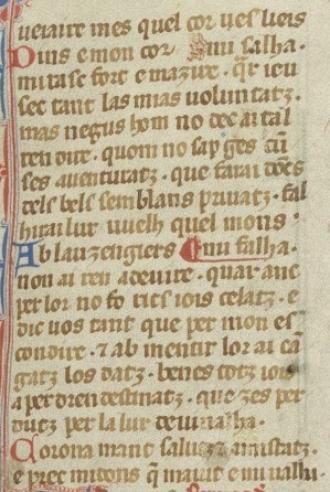 ueraire mes quel cor ues lieis
Puis e mon cor Emi falha.
mitase fort e mazire. qr ieu
sec tant las mias uoluntatz.
mas negus hom no dec ai tal
ren dire. quom no sap ges cū
ses auenturatz. que farai
dels bels semblans priuatz. fal
hirai lur uuelh quel mons
Ab lauzengiers Emi falha.
non ai ren adeuire. quar anc
per lor no fo rics iois celatz. e
dic uos tant que per mon es
condire. ⁊ ab mentir lor ai cā
gatz los datz. bencs totz iois
a perdren destinatz. que zes per
dutz per la lur deuinalha.
Corona mant salutz amistatz.
e prec midons q̄ maiut e mi ualhi.